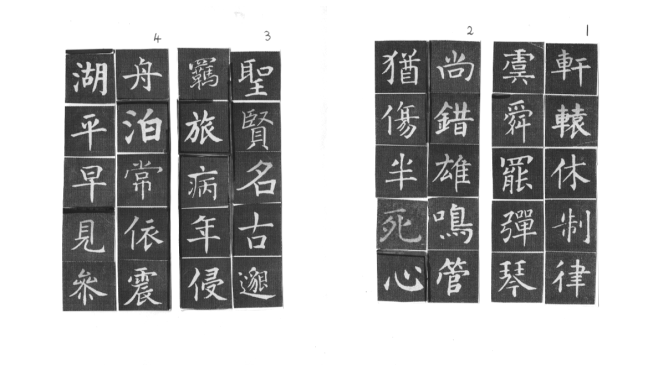 1
軒轅休制律
虞舜罷彈琴
2
尚錯雄鳴管
猶傷半死心
3
聖賢名古邈
羈旅病年侵
4
舟泊常依震
湖平早見參